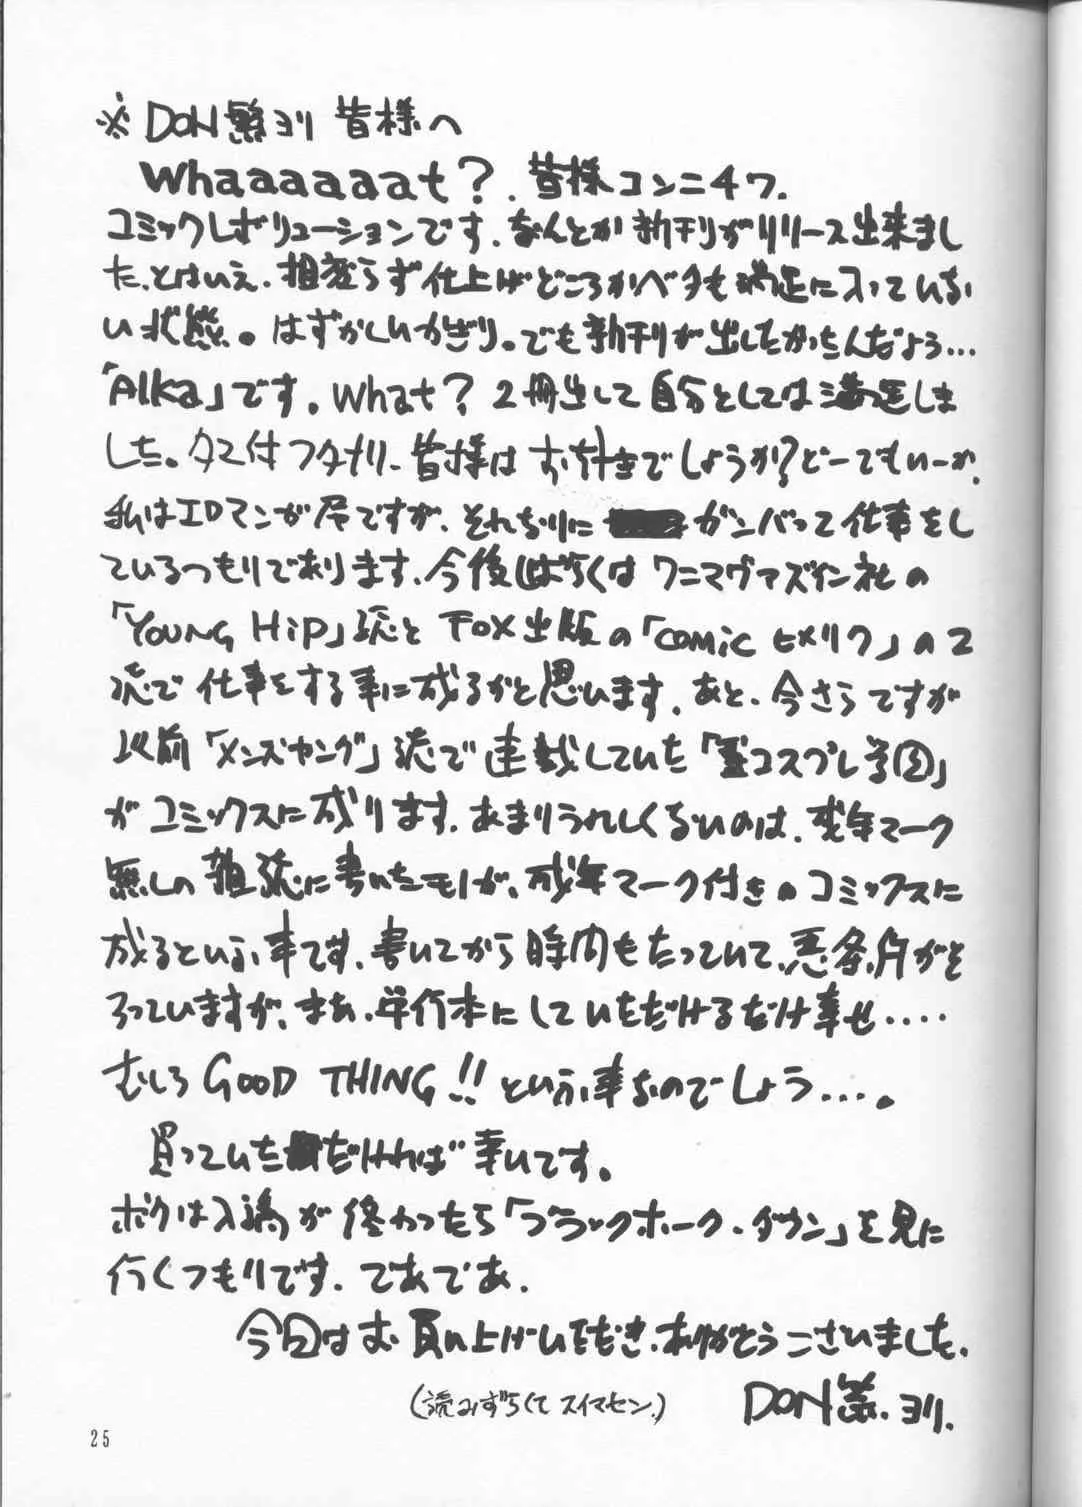 ※DON繁ヨリ 皆様へ
Whaaaaaaat?. 皆様コンニチワ.
コミックレボリューションです. なんとか新刊がリリース出来まし
た. とはいえ. 相変らず仕上げどころかベタも満足に入っていな
い状態。はずかしいかぎり。でも新刊が出したかったんだよう…
「Alka」です。What? 2冊出して自分としては満足しま
した。タマ付フタナリ. 皆様はお好きでしょうか?どーでもいーか.
私はエロマンガ屋ですが. それなりに ガンバって仕事をし
ているつもりであります. 今後しばらくはワニマガァズイン社の
「YOUNG HiP」誌と FOX出版の「comic ヒメクリ」の2
誌で仕事をする事に成るかと思います. あと. 今さらですが
以前「メンズヤング」誌で連載していた「コスプレ学園」
がコミックスに成ります. あまりうれしくないのは. 成年マーク
無しの雑誌に書いたモノが、成年マーク付きのコミックスに
成るという事です. 書いてから時間もたっていて、悪条件がそ
ろっていますが、まあ. 単行本にしていただけるだけ幸せ‥‥
むしろ GOOD THING!! という事なのでしょう…。
買っていただければ幸いです。
ボクは入稿が終わったら「ブラックホーク・ダウン」を見に
行くつもりです. であであ.
今回はお買い上げいただき、ありがとうございました.
(読みずらくて スイマセン.)
DON繁.ヨリ.
25